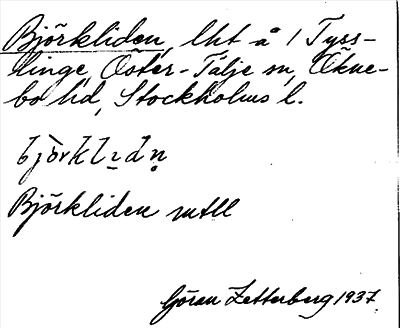 Björkliden, lht å 1 Tyss-
linge, Öster-Tälje sn, Ökne-
bo hd, Stockholms l.
Björkliden mtll
Göran Zetterberg 1937